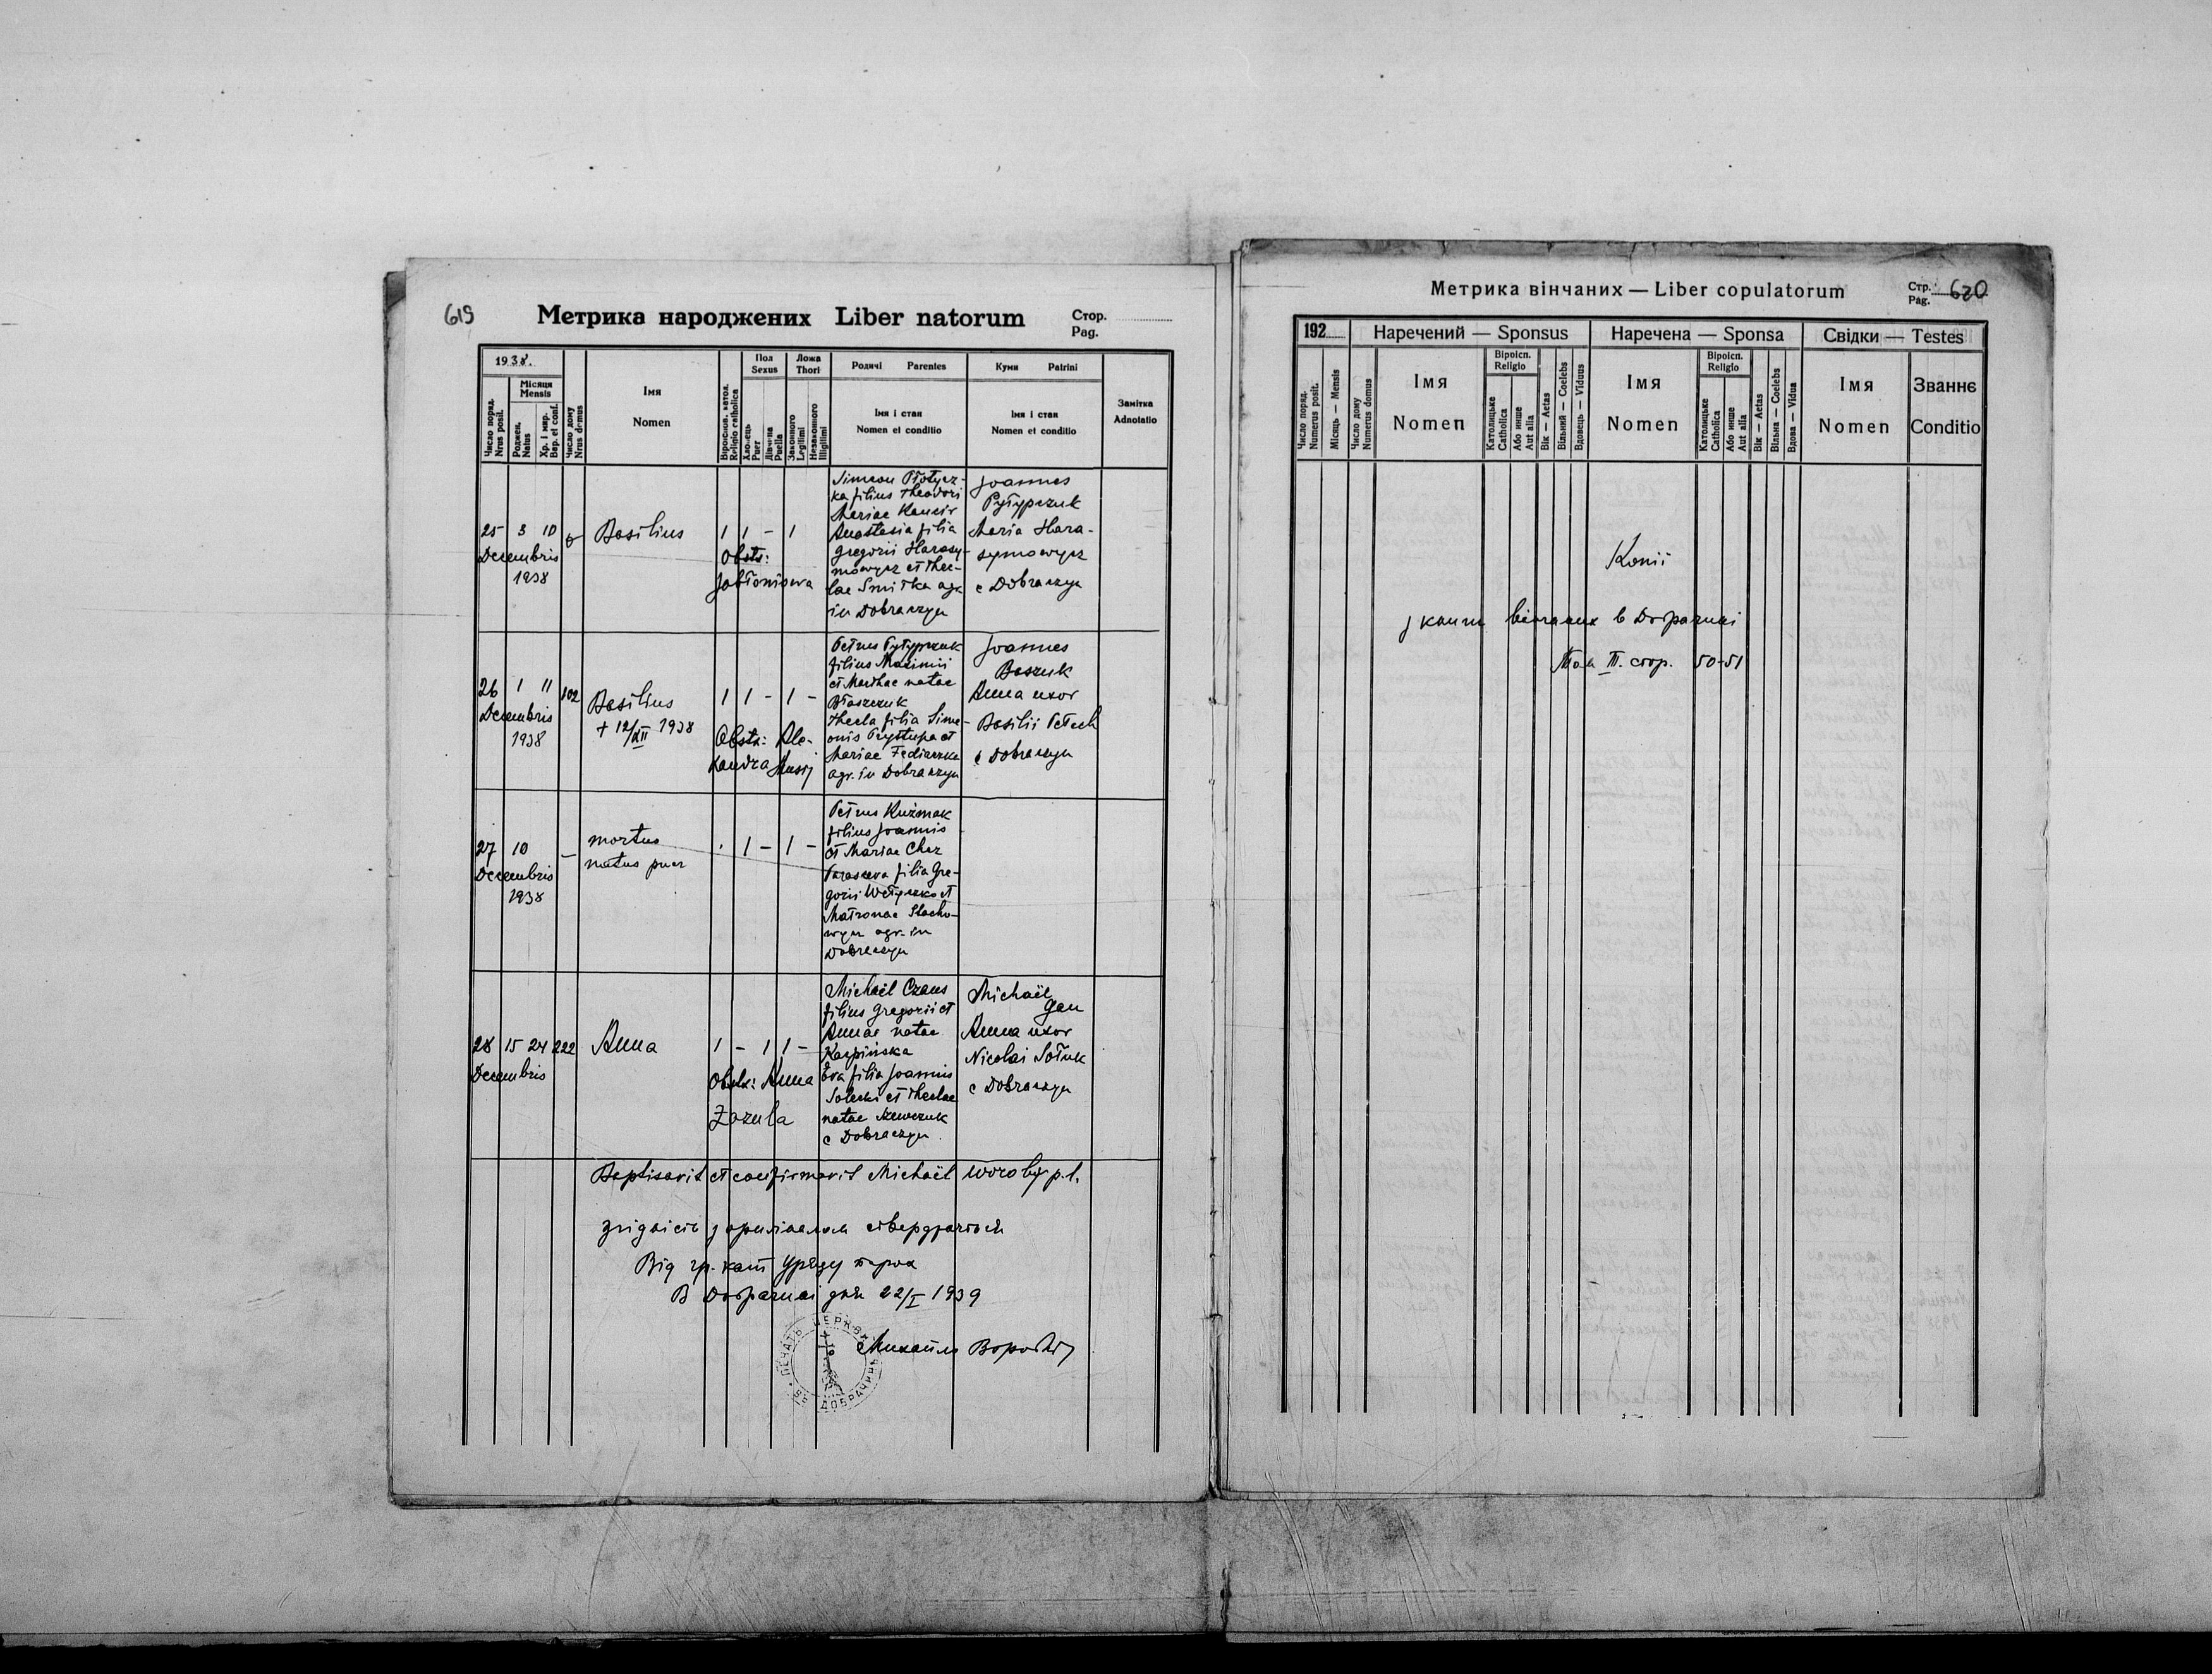 619
Метрика народжених Liber natorum
Стор.
Pag.
1938.
Число поряд.
Nrus posit.
Місяця
Mensis
Роджен.
Natus
Хр. і мир.
Bap. et conf.
Число дому
Nrus domus
Імя
Nomen
Віроіспов. катол.
Religio catholica
Пол
Sexus
Хло-ець
Puer
Дівчина
Puella
Ложа
Thori
Законного
Legitimi
Незаконного
Illigitimi
Родичі Parentes
Імя і стан
Nomen et conditio
Куми Patrini
Імя і стан
Nomen et conditio
Замітка
Adnotatio
25 3 10
Decembris
1938
Basilius
1 1 - 1
Obstr:
Jabłonisova
Simeon Płotycz-
ka filius Theodori
Mariae
Anastasia filia
Gregorii Harasy-
mowycz et Thec-
lae Smitka agr.
in Dobraczyn
Joannes
Pyłypczuk
Maria Hara-
symowycz
e Dobraczyn
26 1 11 102
Decembris
1938
Basilius
+ 12/XII 1938
1 1 - 1 -
Obstr: Ale-
xandra Husij
Petrus Pyłypczuk
filius Maximi
et Marthae natae
Błaszczuk
Thecla filia Sime-
onis Prystupa et
Mariae Fediaczka
agr. in Dobraczyn
Joannes
Baszuk
Anna uxor
Basilii Petech
e Dobraczyn
27 10 —
Decembris
1938
mortus
natus puer
. 1 - 1 -
Petrus Kuźmak
filius Joannis
et Mariae Chez
Parasceva filia Gre-
gorii Wełyczko et
Matronae Stacho-
wycz agr. in
Dobraczyn
28 15 24 222
Decembris
Anna
1 - 1 1 -
Obstr: Anna
Zozula
Michaël Czaus
filius Gregorii et
Annae natae
Karpińska
Eva filia Joannis
Solecki et Theclae
natae Szewczuk
e Dobraczyn.
Michaël
Gau
Anna uxor
Nicolai Sołuk
e Dobraczyn
Baptisavit et confirmavit Michaël Worobij p.l.
Згідність з оригіналом стверджається
Від гр. кат Уряду пароx
В Добрачині дня 22/I 1939
Михайло Воробій
ПЕЧАТЬ ЦЕРКВИ
ДОБРАЧИНЬ
Метрика вінчаних — Liber copulatorum
Стр.
Pag.
620
192
Число поряд.
Numerus posit.
Місяць — Mensis
Число дому
Numerus domus
Наречений — Sponsus
Імя
Nomen
Віроісп.
Religio
Католицьке
Catholica
Або инше
Aut alia
Вік — Aetas
Вільний — Coelebs
Вдовець — Viduus
Наречена — Sponsa
Імя
Nomen
Віроісп.
Religio
Католицьке
Catholica
Або инше
Aut alia
Вік — Aetas
Вільна — Coelebs
Вдова — Vidua
Свідки — Testes
Імя
Nomen
Званнє
Conditio
Копії
з книги вінчаних в Добрачині
Том III. стор. 50-51